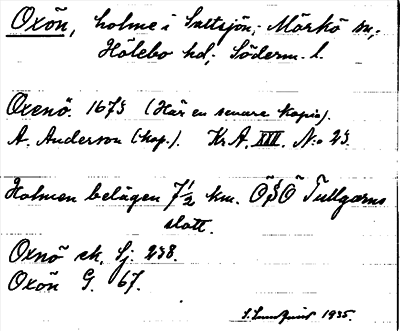 Oxön, holme i Saltsjön; Mörkö sn;
Hölebo hd; Söderm. l.
Oxenö. 1675 (Här en senare kopia).
A. Anderson (kop.). Kr.A. XXV. N:o 25
Holmen belägen 7½ km. ÖSÖ Tullgarns
slott.
Oxnö ek. Sj. 238.
Oxön G. 67.
1935.